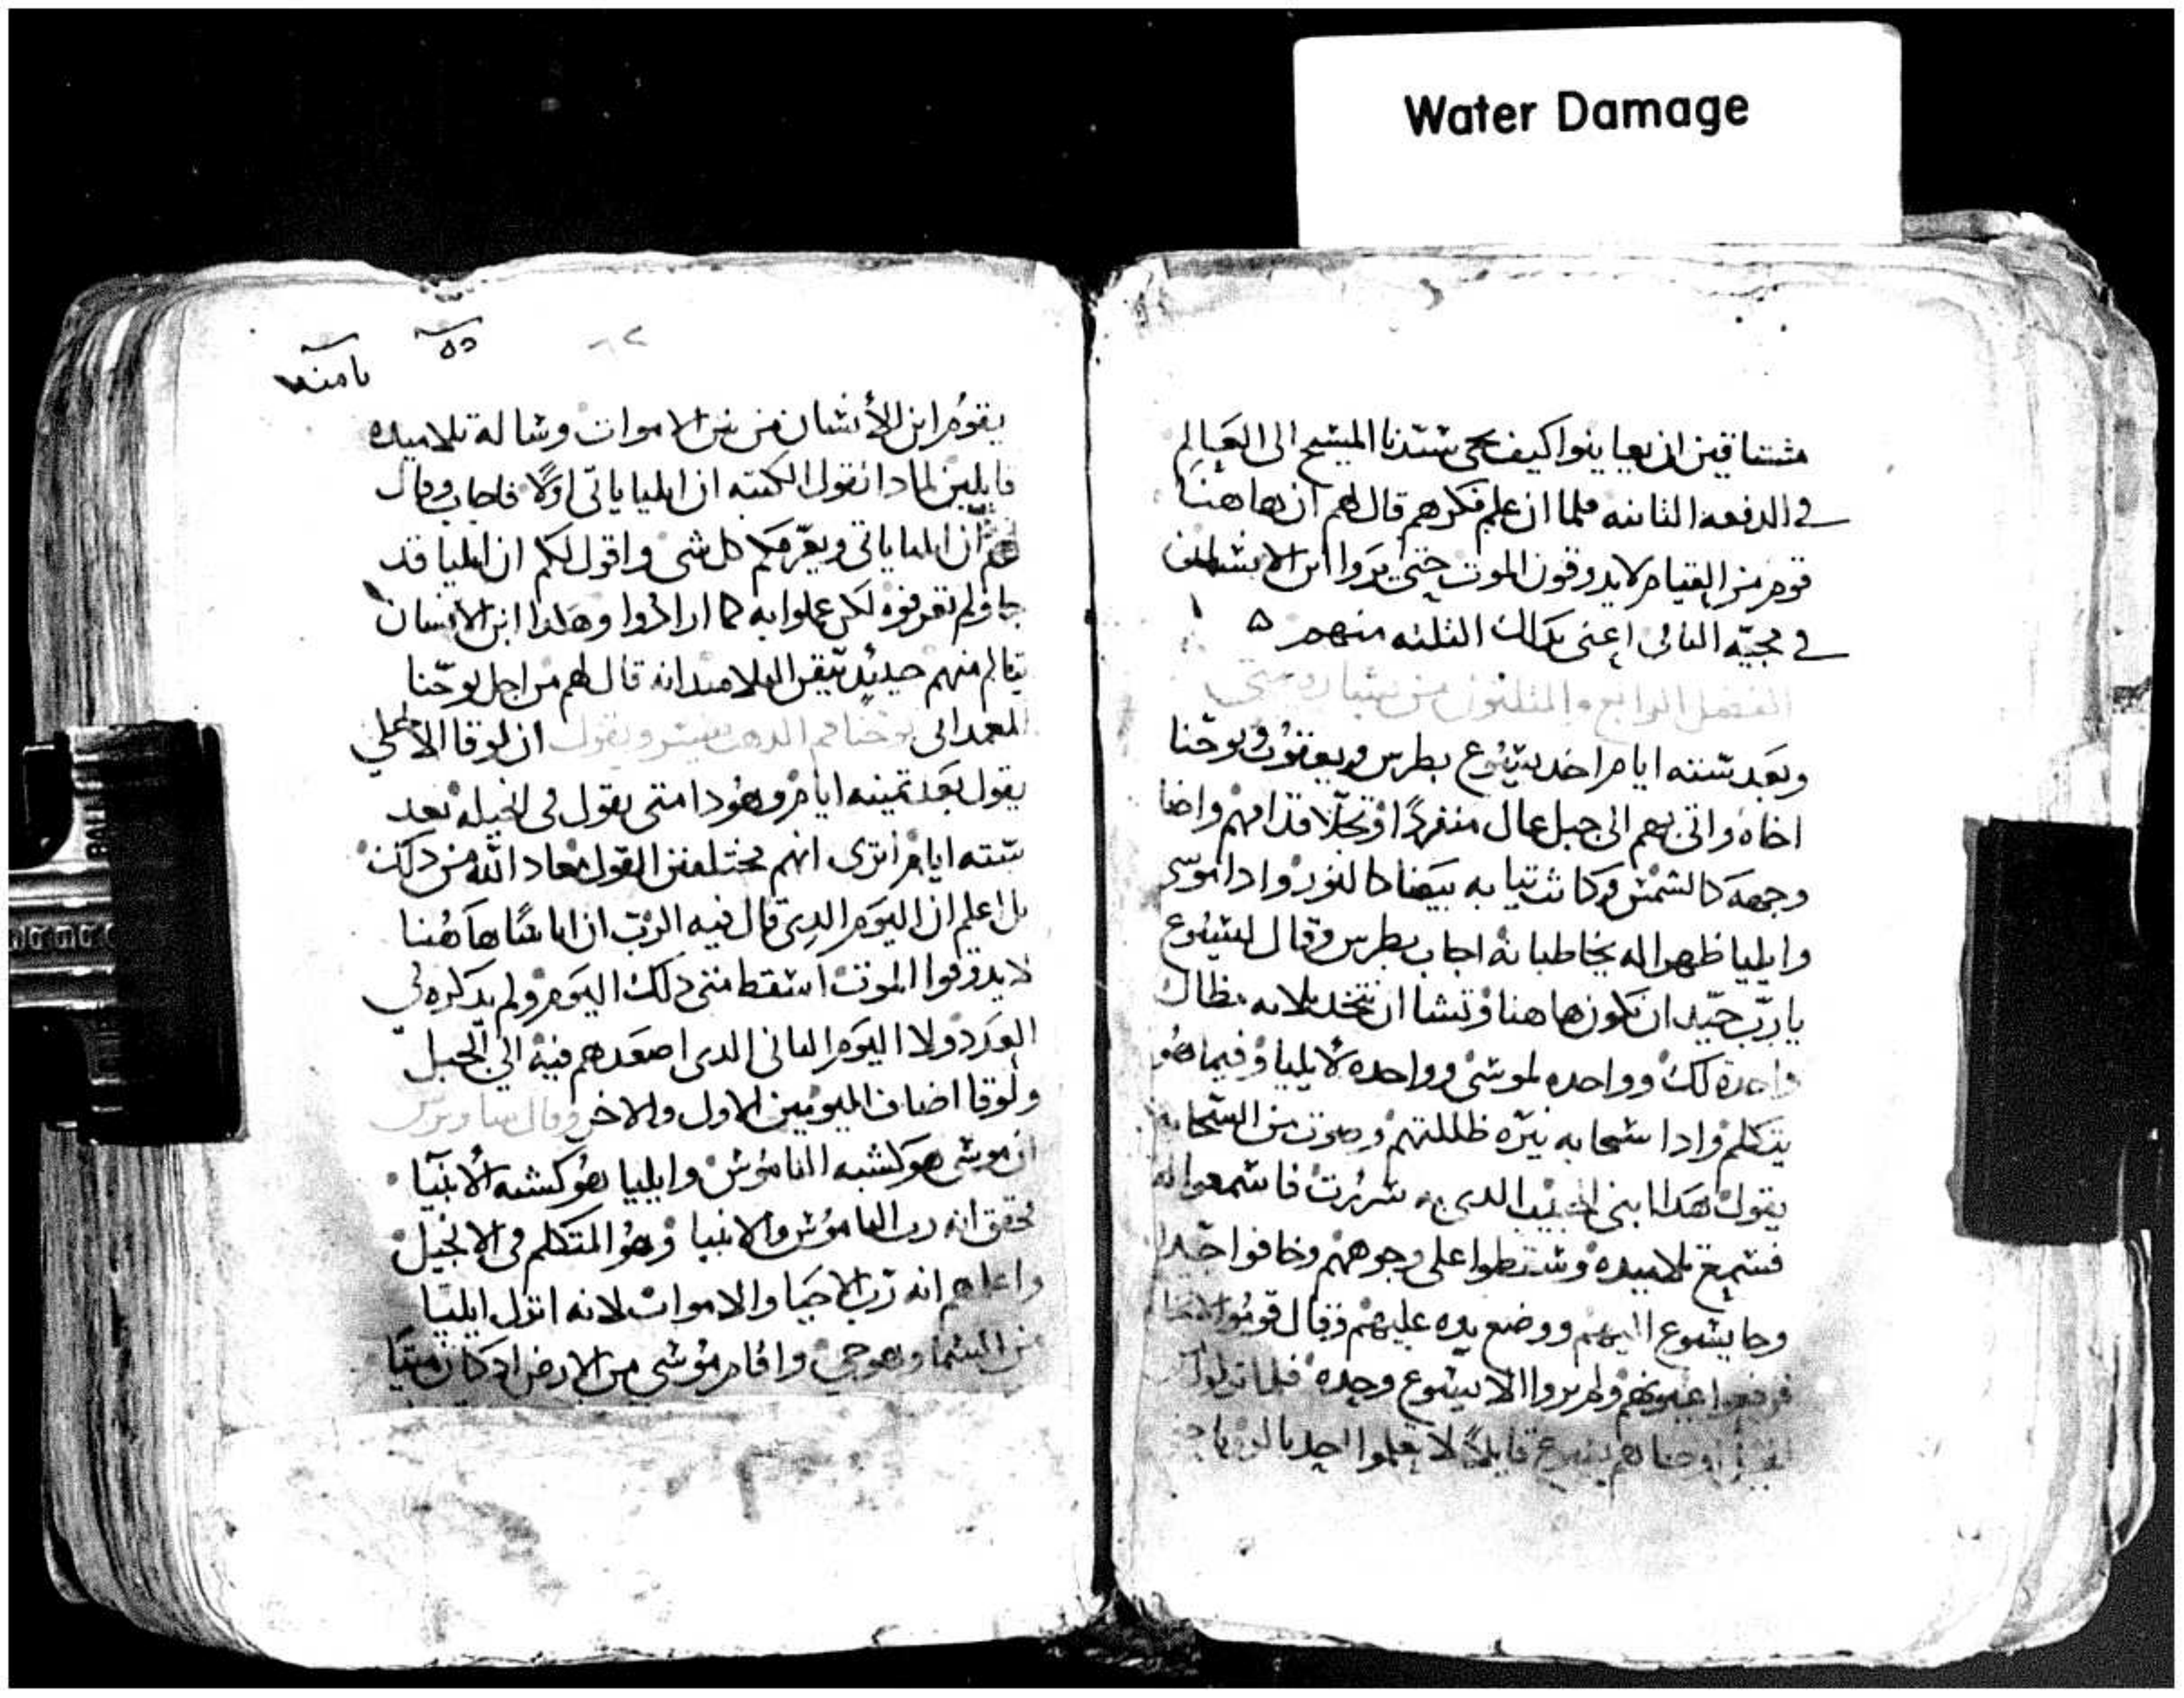 Water Damage
مشتاقين ان يعاينوا كيف يجى سيدنا المسيح الى العالم
في الدفعه الثانيه فلما ان علم فكرهم قال لهم ان هاهنا
قوم من القيام لا يدوقون الموت حتى يروا ابن الانسان
في مجيه الثاني اعنى بدالك الثلثه منهم ه
الفصل الرابع والثلثون من بشاره متى
وبعد سته ايام اخد يسوع بطرس ويعقوب ويوحنا
اخاه واتى بهم الى جبل عال منفردًا وتجلا قدامهم واضا
وجهه كالشمس وكانت تيابه بيضا كالنور وادا موسى
وايليا ظهرا له يخاطبانه اجاب بطرس وقال ليسوع
يا رب جيد ان نكون هاهنا وتشا ان نتخد ثلاثه مظال
واحدة لك وواحده لموسى وواحده لايليا وفيما هو
يتكلم وادا سحابه نيره ظللتهم وصوت من السحابه
يقول هدا ابنى الحبيب الدى به سررت فاسمعوا له
فسمع تلاميده وسقطوا على وجوههم وخافوا جدا
وجا يسوع اليهم ووضع يده عليهم وقال قوموا لا تخافوا
فرفعوا عيونهم ولم يروا الا يسوع وحده فلما نزلوا من
الجبل اوصاهم يسوع قايلاً لا تعلموا احد بالرويا حتى
يقوم ابن الأنسان من بين الاموات وساله تلاميده
قايلين لمادا تقول الكتبه ان ايليا ياتى اولًا فاجاب وقال
لهم ان ايليا ياتى ويعرفكم كل شى واقول لكم ان ايليا قد
جا ولم تعرفوه لكن عملوا به كما ارادوا وهكدا ابن الانسان
يتالم منهم حينيد تيقن التلاميد انه قال لهم من اجل يوحنا
المعمداني يوحنا فم الدهب يفسر ويقول ان لوقا الانجيلي
يقول بعد تمنيه ايام وهودا متى يقول في انجيله بعد
سته ايام اترى انهم مختلفين القول معاد الله من دلك
بل اعلم ان اليوم الدى قال فيه الرب ان اناسًا هاهنا
لا يدوقوا الموت اسقط متى دلك اليوم ولم يدكره في
العدد ولا اليوم الثانى الدى اصعدهم فيه الى الجبل
ولوقا اضاف اليومين الاول والاخر وقال ساويرس
ان موسى هو كشبه الناموس وايليا هو كشبه الأنبيا
تحقق انه رب الناموس والانبيا وهو المتكلم فى الانجيل
واعلمهم انه رب الاحيا والاموات لانه انزل ايليا
من السما وهو حي واقام موسى من الارض اد كان ميتا